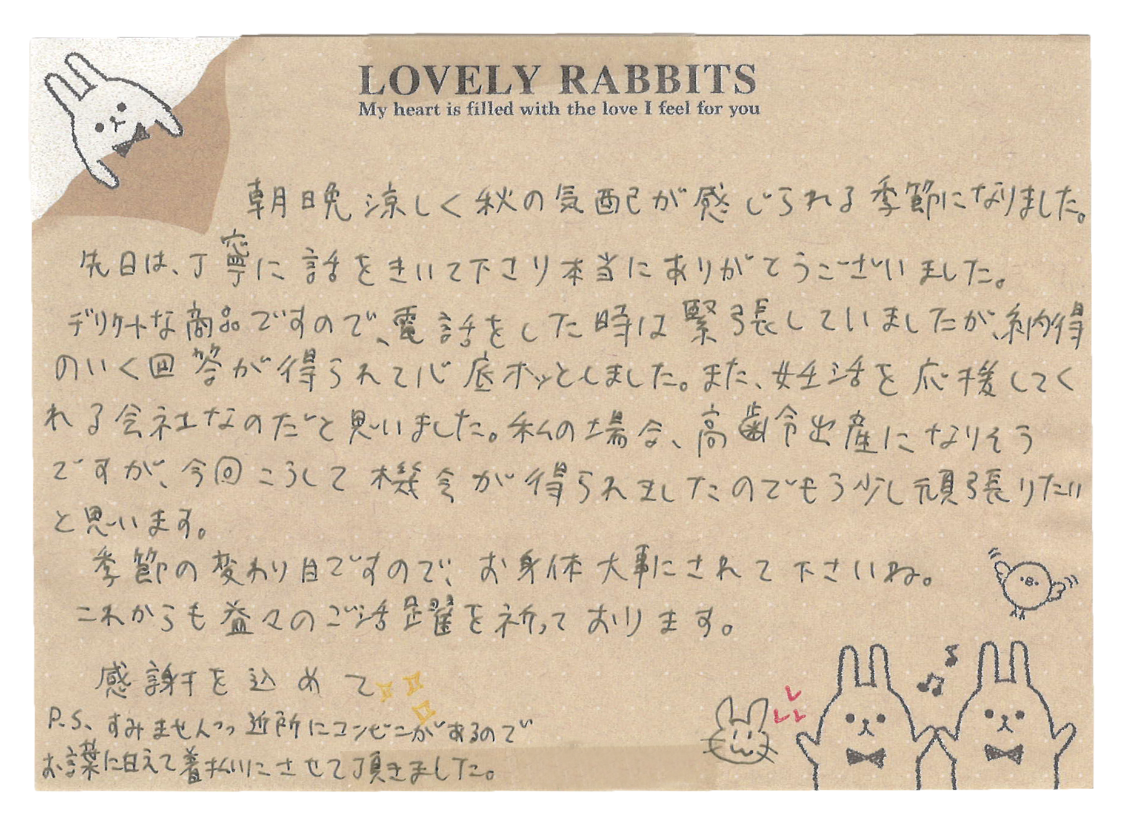 LOVELY RABBITS
My heart is filled with the love I feel for you
朝晩涼しく秋の気配が感じられる季節になりました。
先日は、丁寧に話をきいて下さり本当にありがとうございました。
デリケートな商品ですので、電話をした時は緊張していましたが、納得
のいく回答が得られて心底ホッとしました。また、妊活を応援してく
れる会社なのだと思いました。私の場合、高齢出産になりそう
ですが、今回こうして機会が得られましたのでもう少し頑張りたい
と思います。
季節の変わり目ですので、お身体大事にされて下さいね。
これからも益々のご活躍を祈っております。
感謝を込めて
P.S、すみませんっっ近所にコンビニがあるので
お言葉に甘えて着払いにさせて頂きました。